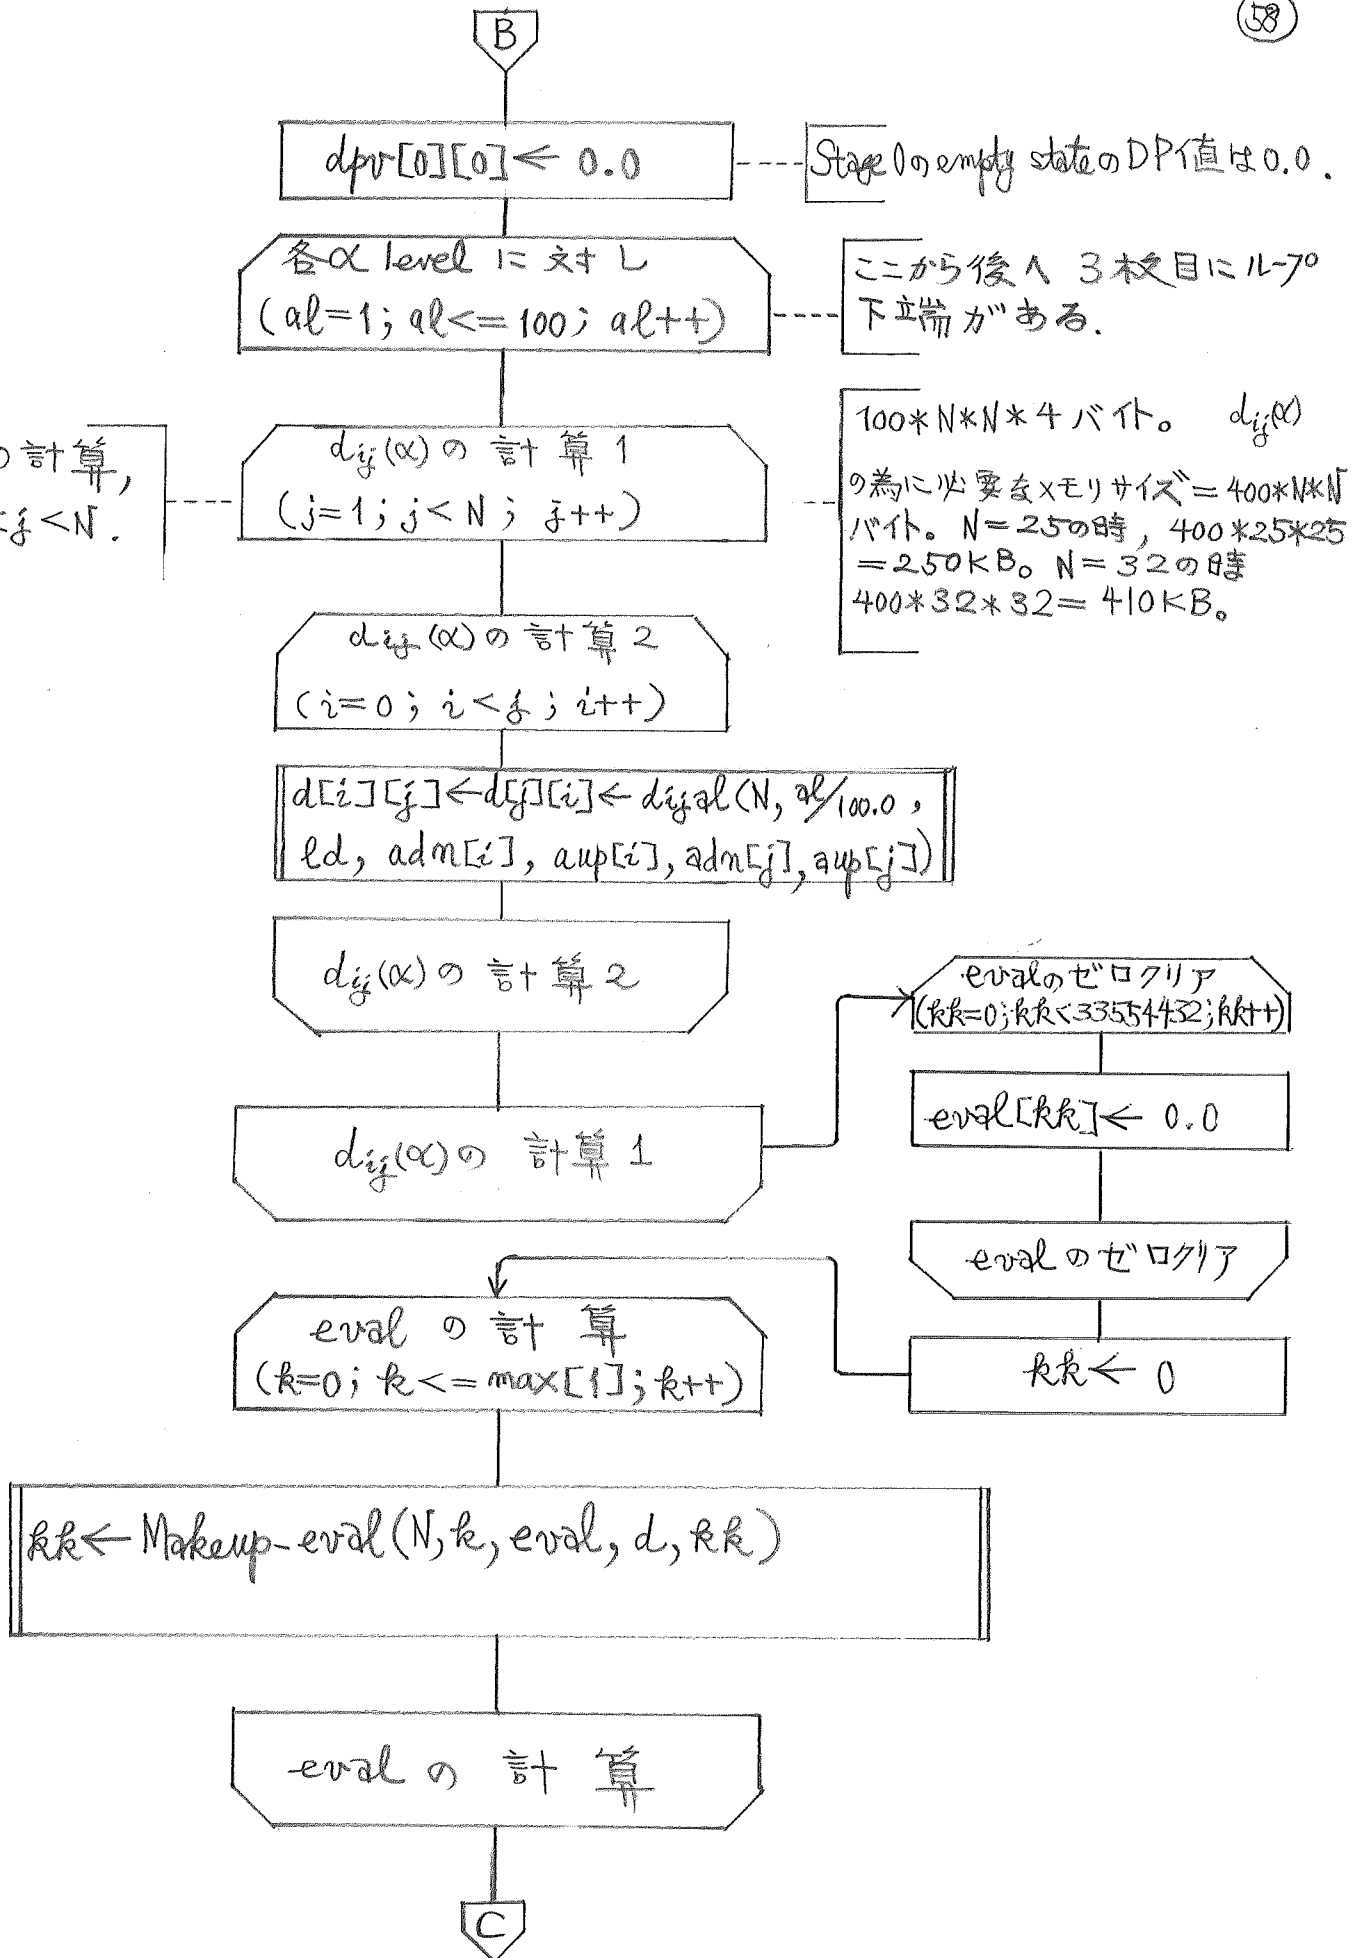 58
B
dpv[0][0]← 0.0
Stage 0のempty stateのDP値は0.0.
各α levelに対し
(al=1; al<=100; al++)
ここから後へ3枚目にループ
下端がある.
の計算,
j<N.
dij(α)の計算1
(j=1; j<N; j++)
100*N*N*4バイト。 dij(α)
の為に必要なメモリサイズ=400*N*N
バイト。N=25の時, 400*25*25
=250KB。N=32の時
400*32*32=410KB。
dij(α)の計算2
(i=0; i<j; i++)
d[i][j]←d[j][i]←dijal(N, al/100.0,
ld, adn[i], aup[i], adn[j], aup[j])
dij(α)の計算2
dij(α)の計算1
evalのゼロクリア
(kk=0; kk<33554432; kk++)
eval[kk]← 0.0
evalのゼロクリア
kk← 0
evalの計算
(k=0; k<=max[1]; k++)
kk←Makeup-eval(N, k, eval, d, kk)
evalの計算
C